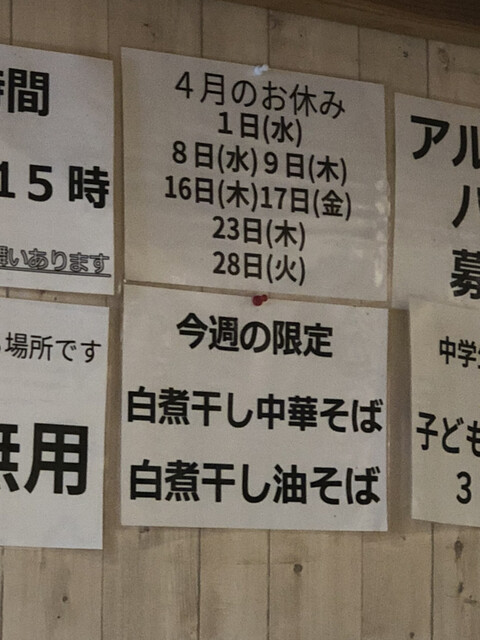 時間
15時
あります
場所です
無用
4月のお休み
1日(水)
8日(水)9日(木)
16日(木)17日(金)
23日(木)
28日(火)
今週の限定
白煮干し中華そば
白煮干し油そば
アル
募
中学生
子ども
3